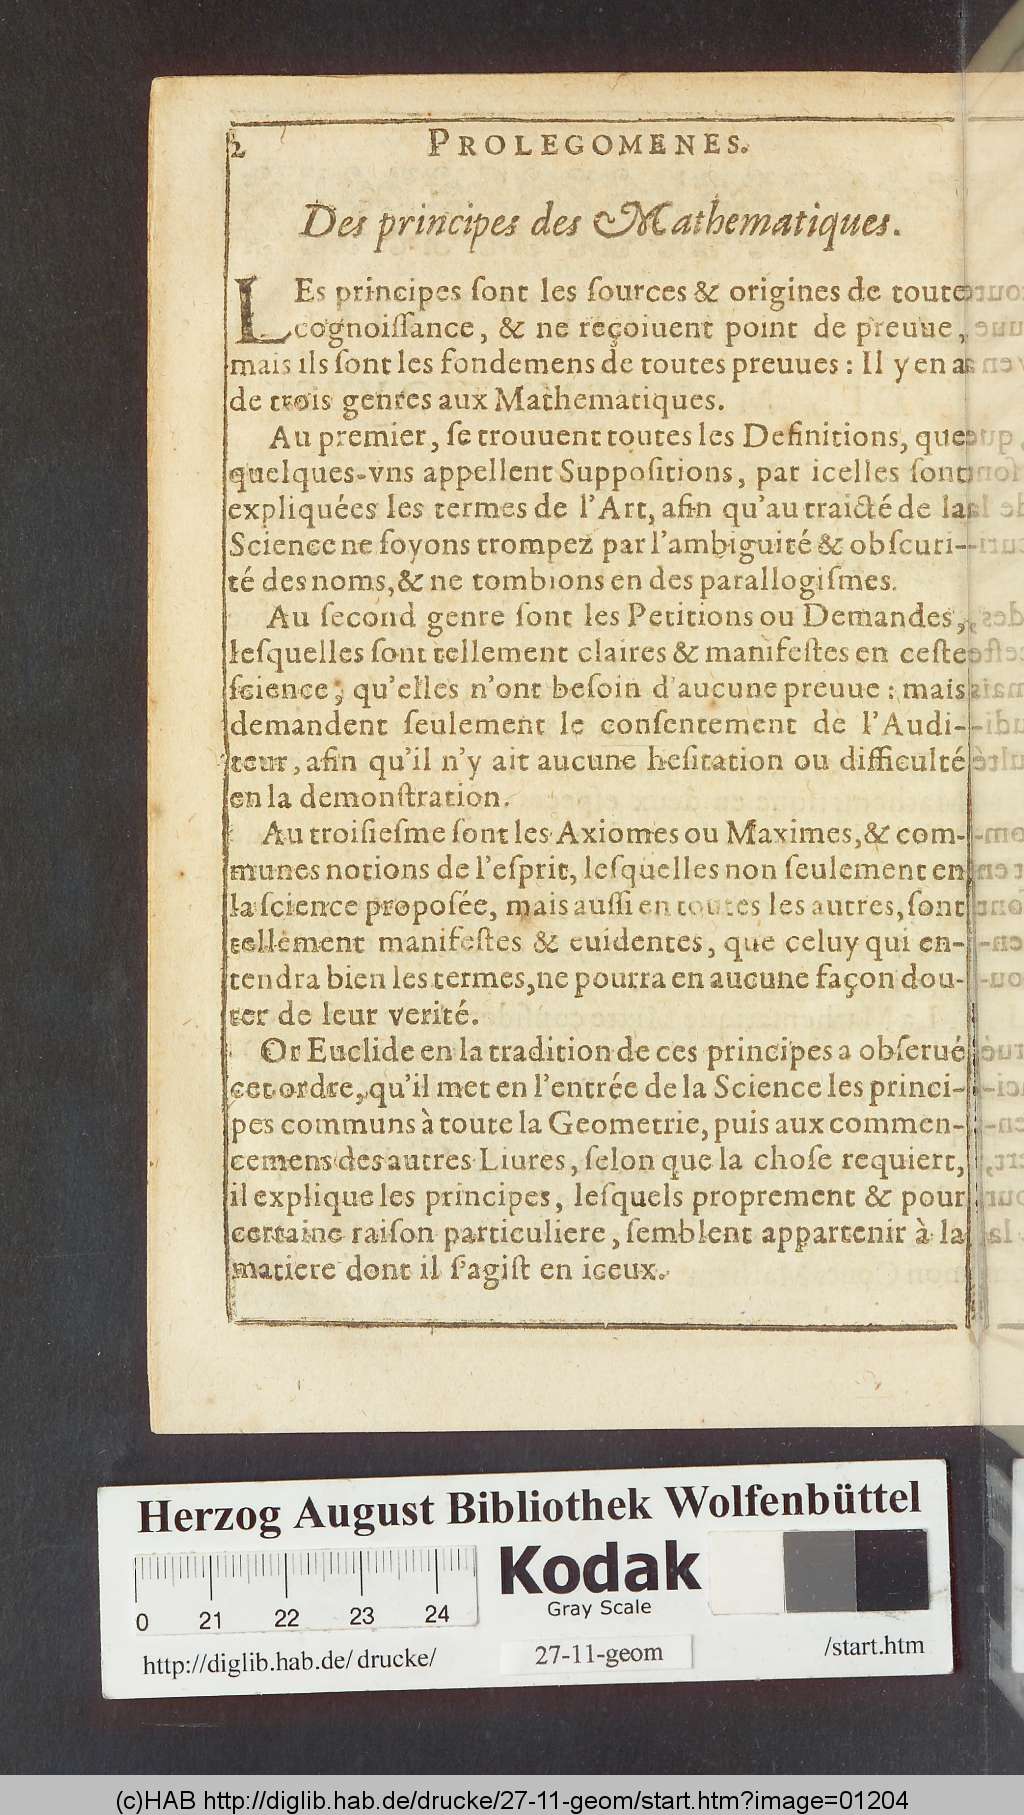 2
PROLEGOMENES.
Des principes des Mathematiques.
LEs principes ſont les ſources & origines de toute
cognoiſſance, & ne reçoiuent point de preuue,
mais ils ſont les fondemens de toutes preuues : Il y en a
de trois genres aux Mathematiques.
Au premier, ſe trouuent toutes les Definitions, que
quelques-vns appellent Suppoſitions, par icelles ſont
expliquées les termes de l'Art, afin qu'au traicté de la
Science ne ſoyons trompez par l'ambiguité & obſcuri-
té des noms, & ne tombions en des parallogiſmes.
Au ſecond genre ſont les Petitions ou Demandes,
leſquelles ſont tellement claires & manifeſtes en ceſte
ſcience, qu'elles n'ont beſoin d'aucune preuue : mais
demandent ſeulement le conſentement de l'Audi-
teur, afin qu'il n'y ait aucune heſitation ou difficulté
en la demonſtration.
Au troiſieſme ſont les Axiomes ou Maximes, & com-
munes notions de l'eſprit, leſquelles non ſeulement en
la ſcience propoſée, mais auſſi en toutes les autres, ſont
tellement manifeſtes & euidentes, que celuy qui en-
tendra bien les termes, ne pourra en aucune façon dou-
ter de leur verité.
Or Euclide en la tradition de ces principes a obſerué
cet ordre, qu'il met en l'entrée de la Science les princi-
pes communs à toute la Geometrie, puis aux commen-
cemens des autres Liures, ſelon que la choſe requiert,
il explique les principes, leſquels proprement & pour
certaine raiſon particuliere, ſemblent appartenir à la
matiere dont il ſ'agiſt en iceux.
Herzog August Bibliothek Wolfenbüttel
Kodak
Gray Scale
0 21 22 23 24
http://diglib.hab.de/ drucke/ 27-11-geom /start.htm
(c)HAB http://diglib.hab.de/drucke/27-11-geom/start.htm?image=01204